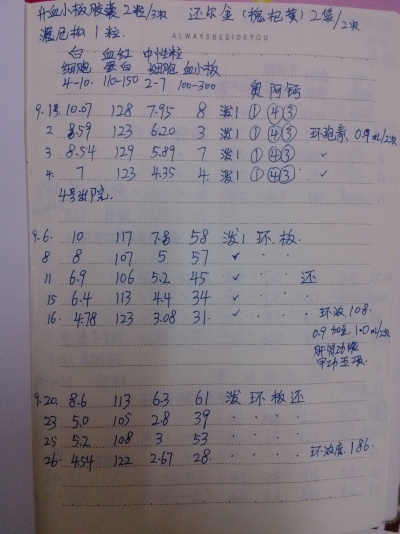 升血小板胶囊 2粒/3次 还尔金(槐杞黄) 2袋/2次
泼尼松 1粒.
ALWAYSBESIDEYOU
白 血红 中性粒
细胞 蛋白 细胞 血小板
4-10. 110-150 2-7 100-300 奥 阿 钙
9.1号 10.07 128 7.95 8 泼1 ① ④ ③
2 8.59 123 6.20 3 泼1 ① ④ ③ 环孢素 0.9ml/2次
3 8.54 129 5.89 7 泼1 ① ④ ③ ✓
4. 7 123 4.35 4. 泼1 ① ④ ③ ✓
4号出院.
9.6. 10 117 7.8 58 泼1 环. 板.
8 8 107 5 57 ✓ · ·
11 6.9 106 5.2 45 ✓ · · 还
15 6.4 113 4.4 34 ✓ · · ·
16. 4.78 123 3.08 31. ✓ · · · 环浓 108.
0.9 加至 1.0ml/2次
肝肾功能
甲功五项.
9.20. 8.6 113 6.3 61 泼 环 板 还
23 5.0 105 2.8 39 · · · ·
25 5.2 108 3 53 · · · ·
26. 4.54 122 2.67 28. · · · · 环浓度. 186.